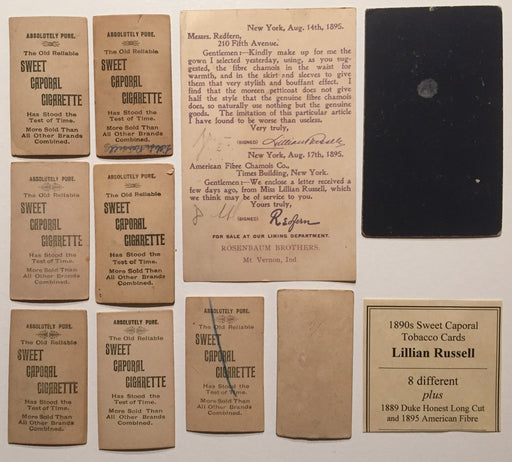 ABSOLUTELY PURE.
The Old Reliable
SWEET
CAPORAL
CIGARETTE
Has Stood the
Test of Time.
More Sold Than
All Other Brands
Combined.
ABSOLUTELY PURE.
The Old Reliable
SWEET
CAPORAL
CIGARETTE
Has Stood the
Test of Time.
More Sold Than
All Other Brands
Combined.
New York, Aug. 14th, 1895.
Messrs. Redfern,
210 Fifth Avenue.
Gentlemen:—Kindly make up for me the
gown I selected yesterday, using, as you sug-
gested, the fibre chamois in the waist for
warmth, and in the skirt and sleeves to give
them that very stylish and bouffant effect. I
find that the moreen petticoat does not give
half the style that the genuine fibre chamois
does, so naturally use nothing but the genuine
goods. The imitation of this particular article
I have found to be worse than useless.
Very truly,
(SIGNED) Lillian Russell
New York, Aug. 17th, 1895.
American Fibre Chamois Co.,
Times Building, New York.
Gentlemen:—We enclose a letter received a
few days ago, from Miss Lillian Russell, which
we think may be of service to you.
Yours truly,
(SIGNED) Redfern
FOR SALE AT OUR LINING DEPARTMENT.
ROSENBAUM BROTHERS.
Mt. Vernon, Ind.
ABSOLUTELY PURE.
The Old Reliable
SWEET
CAPORAL
CIGARETTE
Has Stood the
Test of Time.
More Sold Than
All Other Brands
Combined.
ABSOLUTELY PURE.
The Old Reliable
SWEET
CAPORAL
CIGARETTE
Has Stood the
Test of Time.
More Sold Than
All Other Brands
Combined.
ABSOLUTELY PURE.
The Old Reliable
SWEET
CAPORAL
CIGARETTE
Has Stood the
Test of Time.
More Sold Than
All Other Brands
Combined.
ABSOLUTELY PURE.
The Old Reliable
SWEET
CAPORAL
CIGARETTE
Has Stood the
Test of Time.
More Sold Than
All Other Brands
Combined.
ABSOLUTELY PURE.
The Old Reliable
SWEET
CAPORAL
CIGARETTE
Has Stood the
Test of Time.
More Sold Than
All Other Brands
Combined.
1890s Sweet Caporal
Tobacco Cards
Lillian Russell
8 different
plus
1889 Duke Honest Long Cut
and 1895 American Fibre